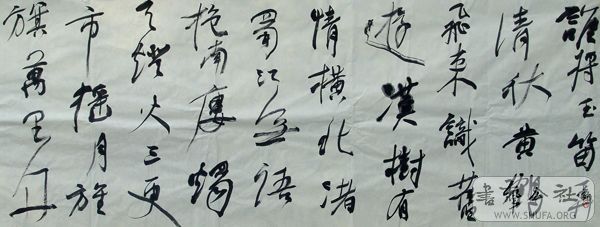 誰將玉笛
清秋黄鶴
飛来識舊
遊漢樹有
情橫北渚
蜀江無語
抱南樓燭
天燈火三更
市摇月旌
旗萬里舟
WWW.SHUFA.ORG